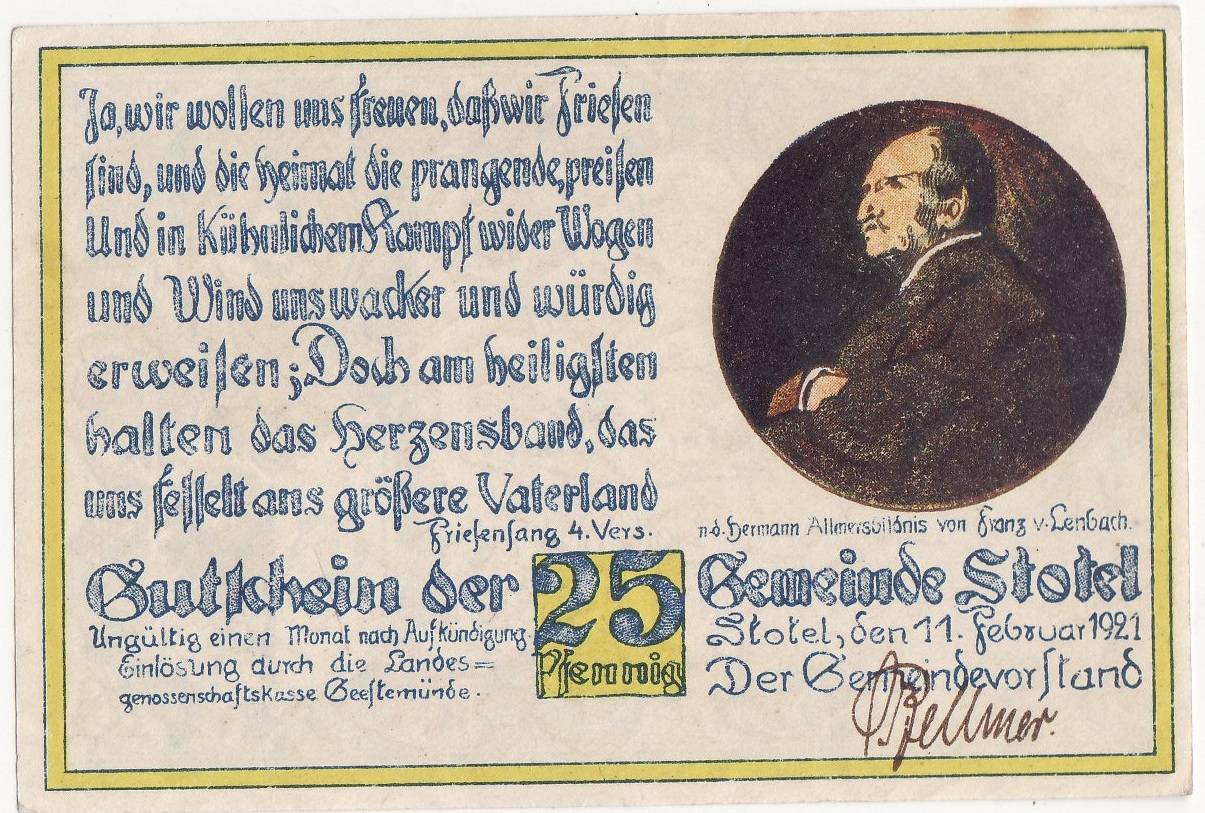 Ja, wir wollen uns freuen, daß wir Frieſen
ſind, und die Heimat die prangende, preiſen
Und in Kühnlichem Kampf wider Wogen
und Wind uns wacker und würdig
erweiſen; Doch am heiligſten
halten das Herzensband, das
uns feſſelt ans größere Vaterland
Frieſenſang 4. Vers.
n. d. Hermann Allmersbildnis von Franz v. Lenbach.
Gutſchein der
25
Pfennig
Gemeinde Stotel
Ungültig einen Monat nach Aufkündigung.
Einlösung durch die Landes=
genossenschaftskasse Geeſtemünde.
Stotel, den 11. Februar 1921
Der Gemeindevorſtand